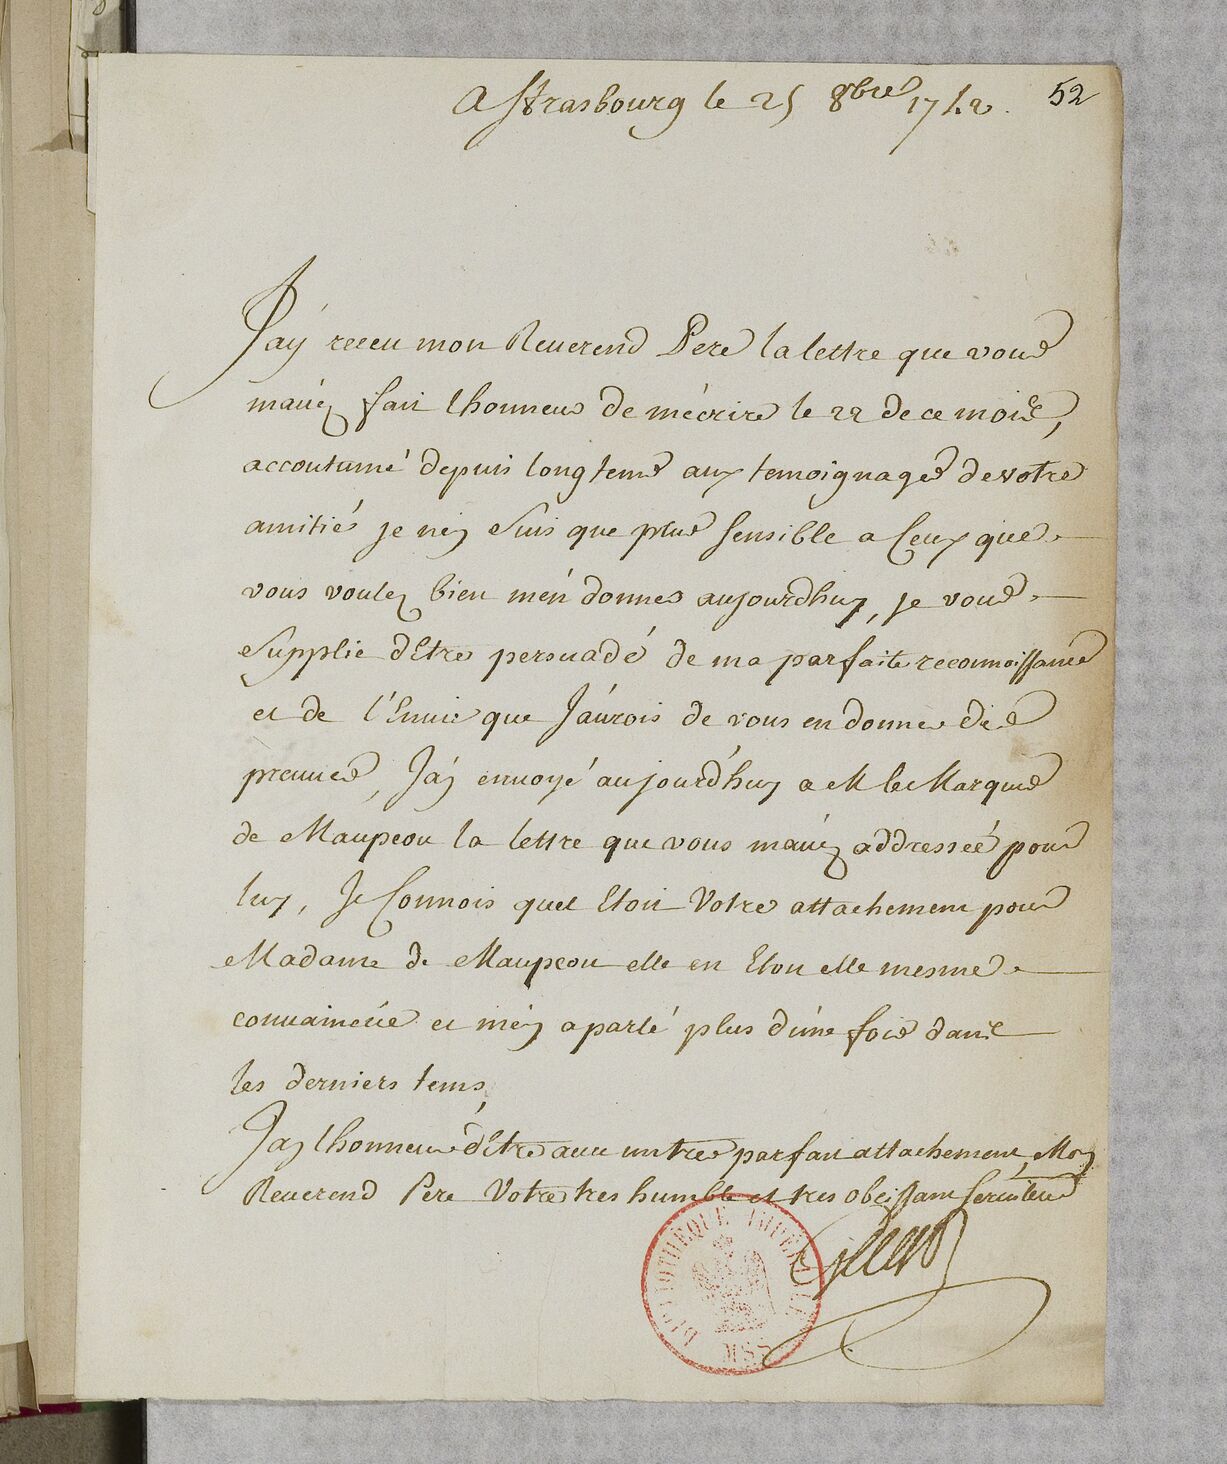 A Strasbourg le 25 8bre 1742.
52
J'ay receu mon Reuerend Pere la lettre que vous
m'aués fait l'honneur de m'écrire le 22 de ce mois,
accoutumé depuis longtems aux temoignages de votre
amitié je n'ey suis que plus sensible a Ceux que
vous voulez bien m'én donner aujourdhuy, je vous
supplie d'Etre persuadé de ma parfaite reconnoissance
et de l'Enuie que J'aurois de vous en donner des
preuues, J'ay envoyé aujourd'huy a M le Marquis
de Maupeou la lettre que vous m'auéz addresseé pour
luy, Je Connois quel Etoit Votre attachement pour
Madame de Maupeou elle en Etoit elle mesme
conuaincüe et m'éy a parlé plus d'une fois dans
les derniers tems,
J'ay l'honneur d'Etre auec un tres parfait attachement, Mon
Reuerend Pere Votre tres humble et tres obeissant seruiteur
BIBLIOTHÈQUE IMPÉRIALE
MSS